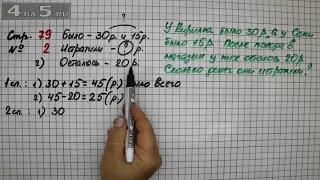 4 НА 5.RU
Стр. 79
№ 2
2)
Было – 30р. и 15р.
?
Истратили – ? р.
Осталось – 20р.
1сп.: 1) 30 + 15 = 45 (р.) было всего
2) 45 – 20 = 25 (р.)
2сп.: 1) 30
У Кирилла было 30р. а у Сони
было 15р. После похода в
магазин у них осталось 20р.
Сколько денег они истратили?